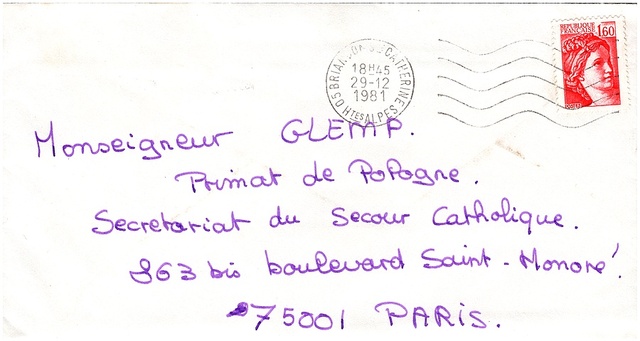 REPUBLIQUE FRANÇAISE
1,60
05 BRIANCON STE CATHERINE
18H45
29-12
1981
HTES ALPES
Monseigneur GLEMP.
Primat de Pologne.
Secretariat du Secour Catholique.
863 bis boulevard Saint-Honoré.
75001 PARIS.